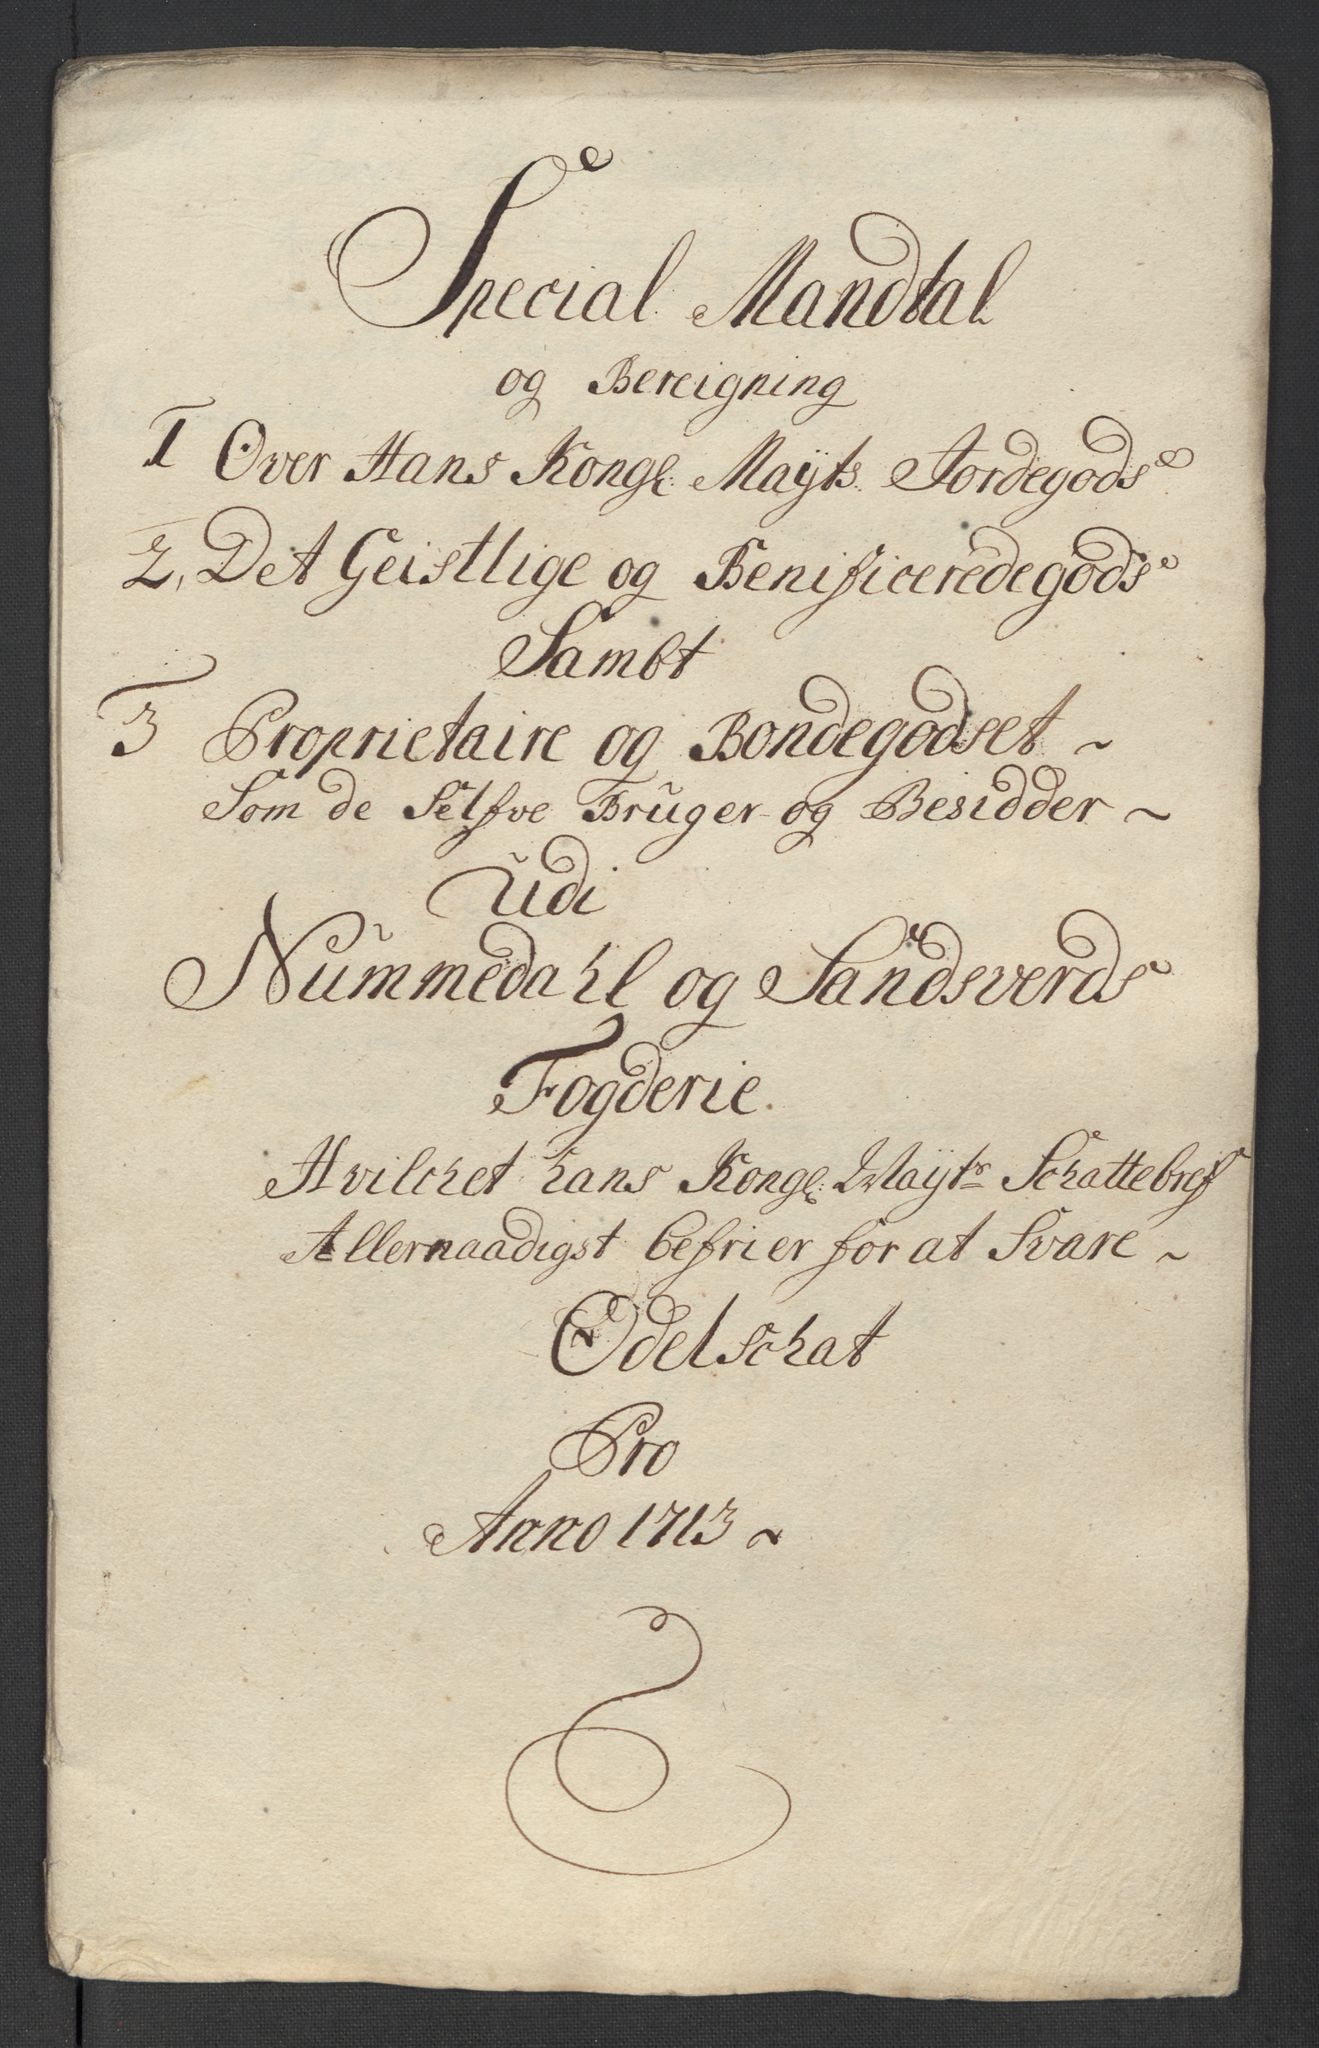 Special Mandtal
og Bereigning
1 Over Hans Kongl: Mayts. Jordegods
2, Det Geistlige og Benificeredegods
Sambt
3 Proprietaire og Bondegodset ~
Som de Selfve Bruger og Besidder ~
udi
Nummedahl og Sandsverds
Fogderie.
Hvilchet hans Kongl: Mayts Schattebref
Allernaadigst befrier for at Svare ~
Odelschat
Pro
Anno 1713 ~